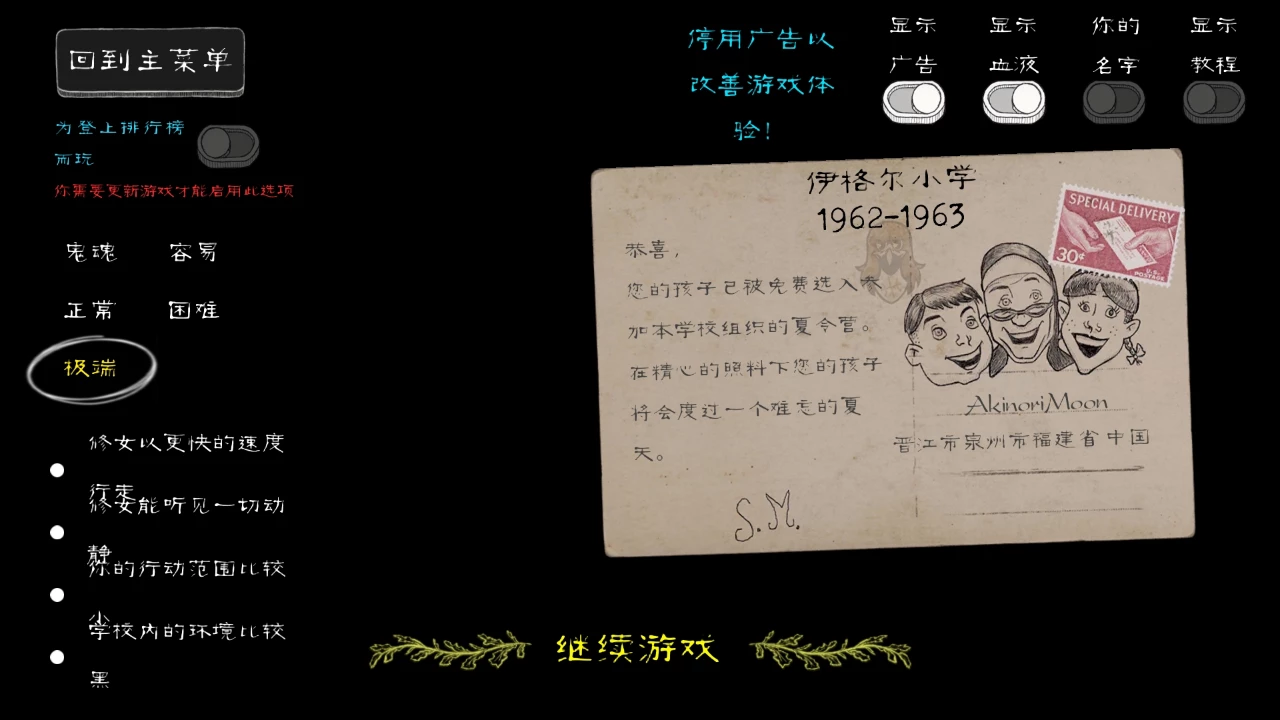 回到主菜单
为登上排行榜
而玩
你需要更新游戏才能启用此选项
鬼魂 容易
正常 困难
极端
修女以更快的速度
行走
修女能听见一切动
静
你的行动范围比较
小
学校内的环境比较
黑
停用广告以
改善游戏体
验！
显示 显示 你的 显示
广告 血液 名字 教程
伊格尔小学
1962-1963
SPECIAL DELIVERY
30¢
U.S.
POSTAGE
恭喜，
您的孩子已被免费选入参
加本学校组织的夏令营。
在精心的照料下您的孩子
将会度过一个难忘的夏
天。
S.M.
AkinoriMoon
晋江市泉州市福建省中国
继续游戏